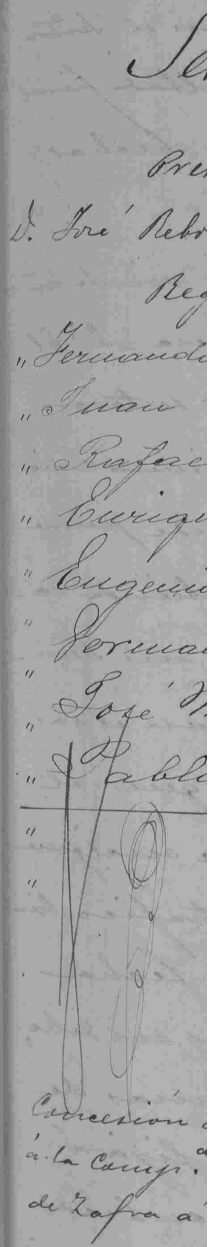 Se
Pre
D. José Rebo
Reg
" Fernando
" Juan
" Rafae
" Enriqu
" Eugenio
" German
" José M
" Pablo
"
"
Concesión
á la Comp.ª
de Zafra á